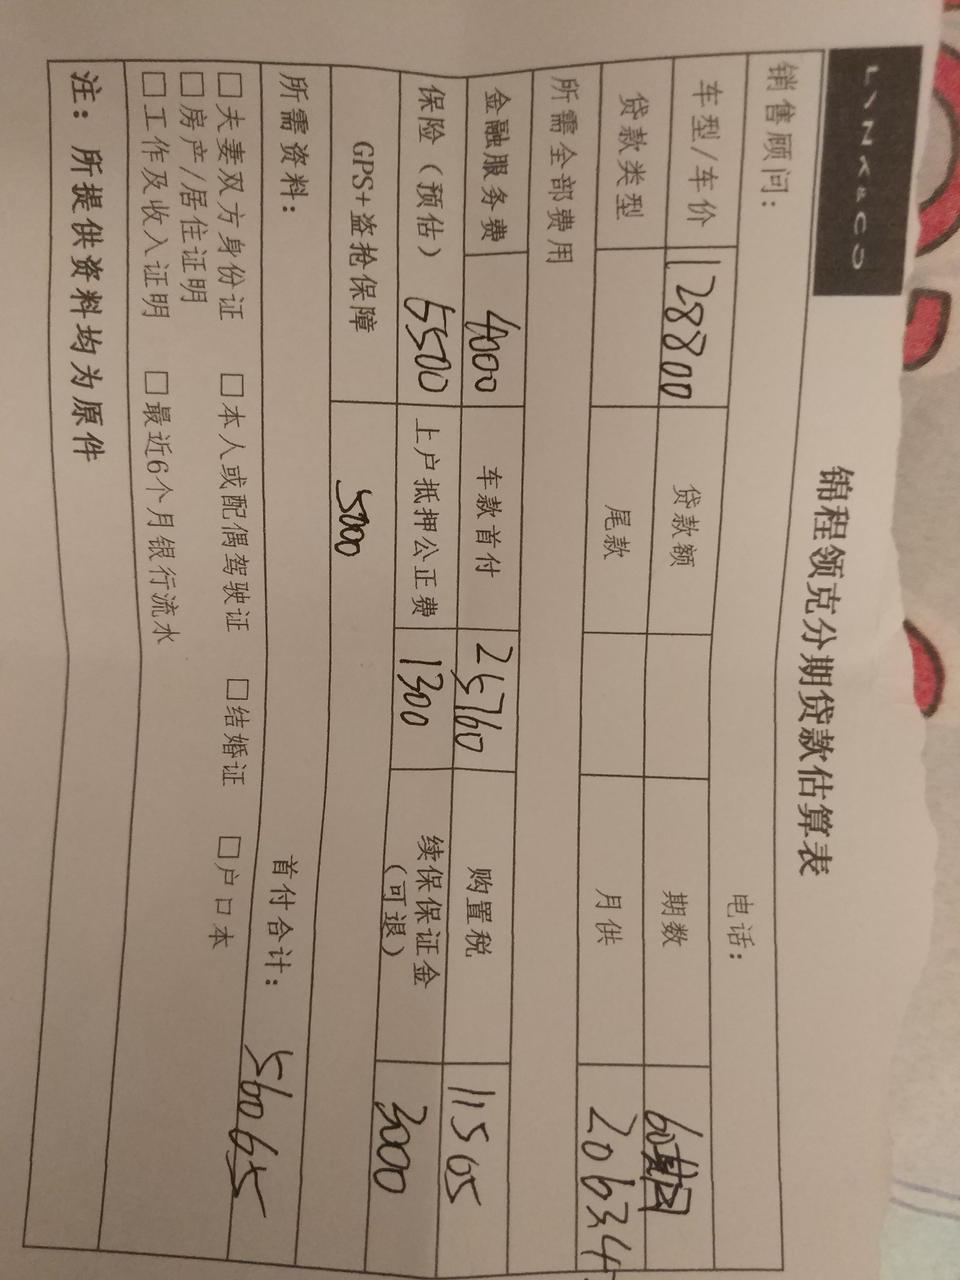 LYNK&CO
锦程领克分期贷款估算表
销售顾问： 电话：
车型/车价 128800 贷款额 期数 60期
贷款类型 尾款 月供 2063.4
所需全部费用
金融服务费 4000 车款首付 25760 购置税 11505
保险（预估） 5500 上户抵押公正费 1300 续保保证金（可退） 3000
GPS+盗抢保障 5000
所需资料： 首付合计： 56065
□夫妻双方身份证 □本人或配偶驾驶证 □结婚证 □户口本
□房产/居住证明
□工作及收入证明 □最近6个月银行流水
注：所提供资料均为原件